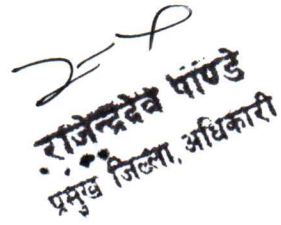 राजेन्द्रदेव पाण्डे
प्रमुख जिल्ला, अधिकारी